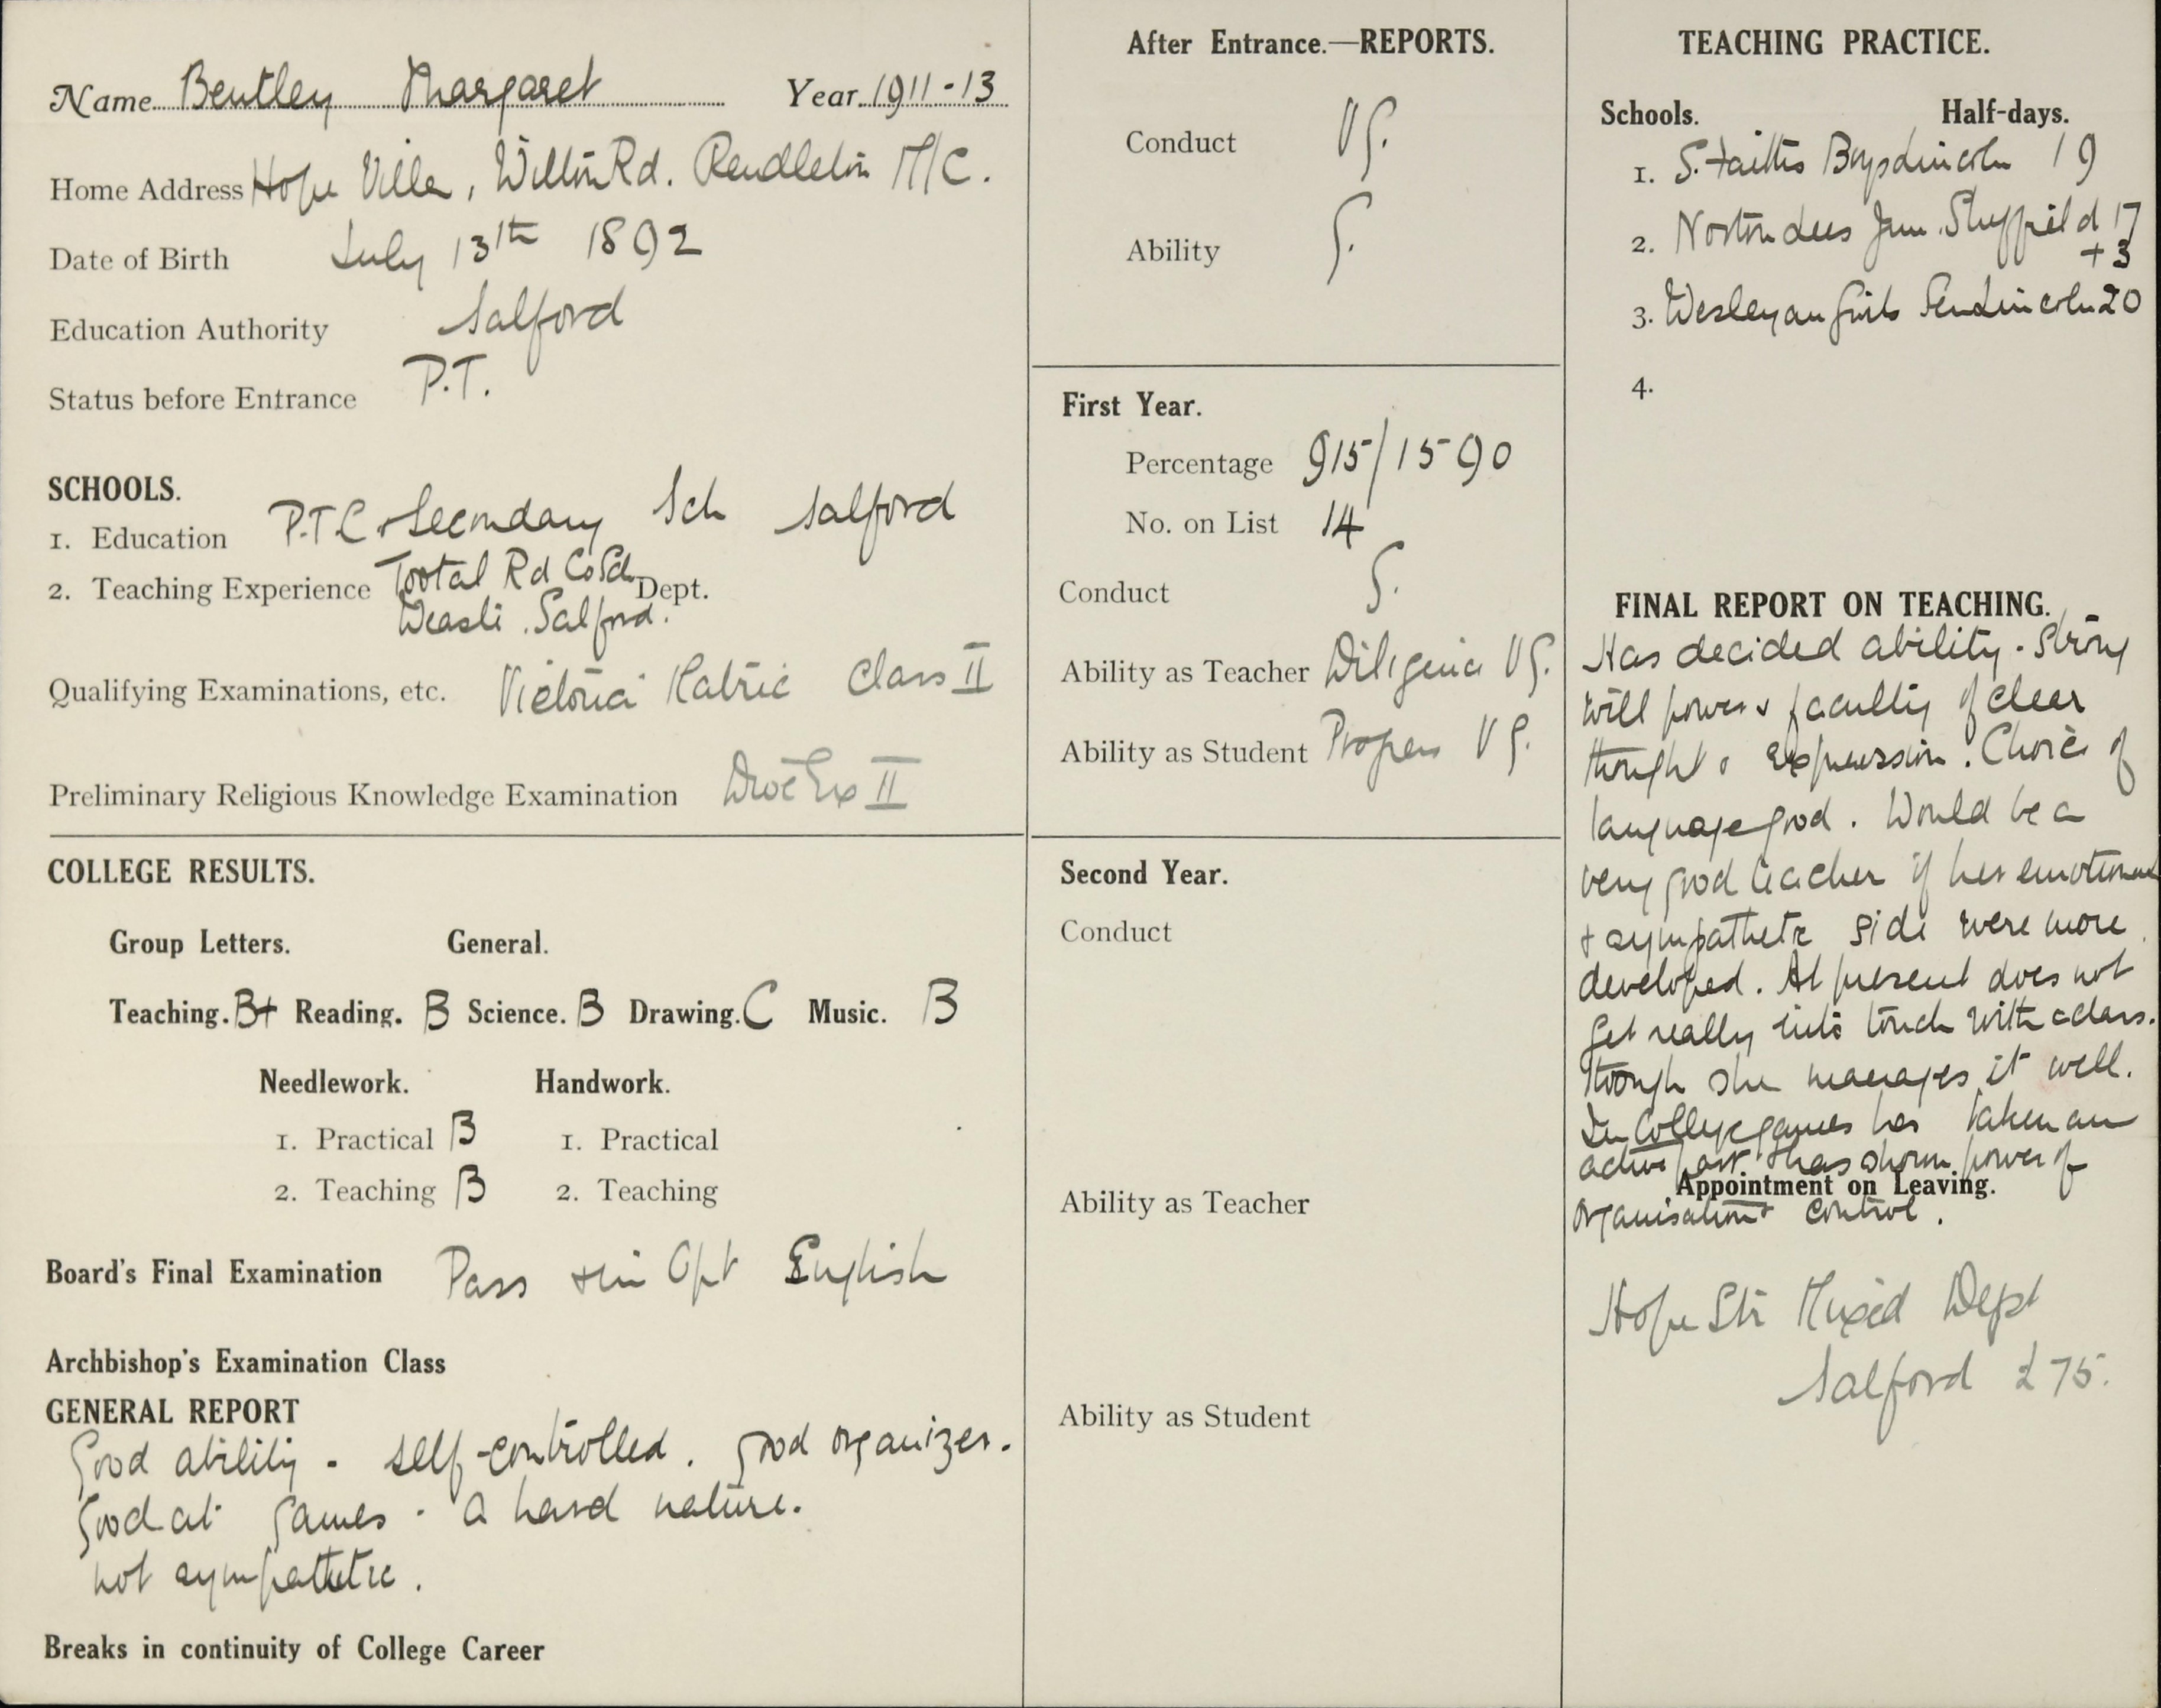 Name Bentley Margaret Year 1911-13
Home Address Hope Villa, Wilton Rd. Pendleton M/C.
Date of Birth July 13th 1892
Education Authority Salford
Status before Entrance P.T.
SCHOOLS.
1. Education P.T.C + Secondary Sch Salford
2. Teaching Experience Tootal Rd Co Sch Dept.
Weaste. Salford.
Qualifying Examinations, etc. Victoria Matric Class II
Preliminary Religious Knowledge Examination Dioc Ex II
COLLEGE RESULTS.
Group Letters. General.
Teaching. B+ Reading. B Science. B Drawing. C Music. B
Needlework. Handwork.
1. Practical B 1. Practical
2. Teaching B 2. Teaching
Board's Final Examination Pass + in Opt English
Archbishop's Examination Class
GENERAL REPORT
Good ability - self-controlled. good organizer.
Good at games - A hard nature.
not sympathetic.
Breaks in continuity of College Career
After Entrance.—REPORTS.
Conduct VG.
Ability G.
First Year.
Percentage 915/1590
No. on List 14
Conduct G.
Ability as Teacher Diligence VG.
Ability as Student Progress VG.
Second Year.
Conduct
Ability as Teacher
Ability as Student
TEACHING PRACTICE.
Schools. Half-days.
1. S. Faiths Boys Lincoln 19
2. Norton Lees Jun. Sheffield 17
+3
3. Wesleyan Girls Sen Lincoln 20
4.
FINAL REPORT ON TEACHING.
Has decided ability. Strong
will power & faculty of clear
thought & expression. Choice of
language good. Would be a
very good teacher if her emotional
& sympathetic side were more
developed. At present does not
get really into touch with a class.
though she manages it well.
In College games has taken an
active part. & has shown power of
Appointment on Leaving.
organisation & control.
Hope Str Mixed Dept
Salford £75.